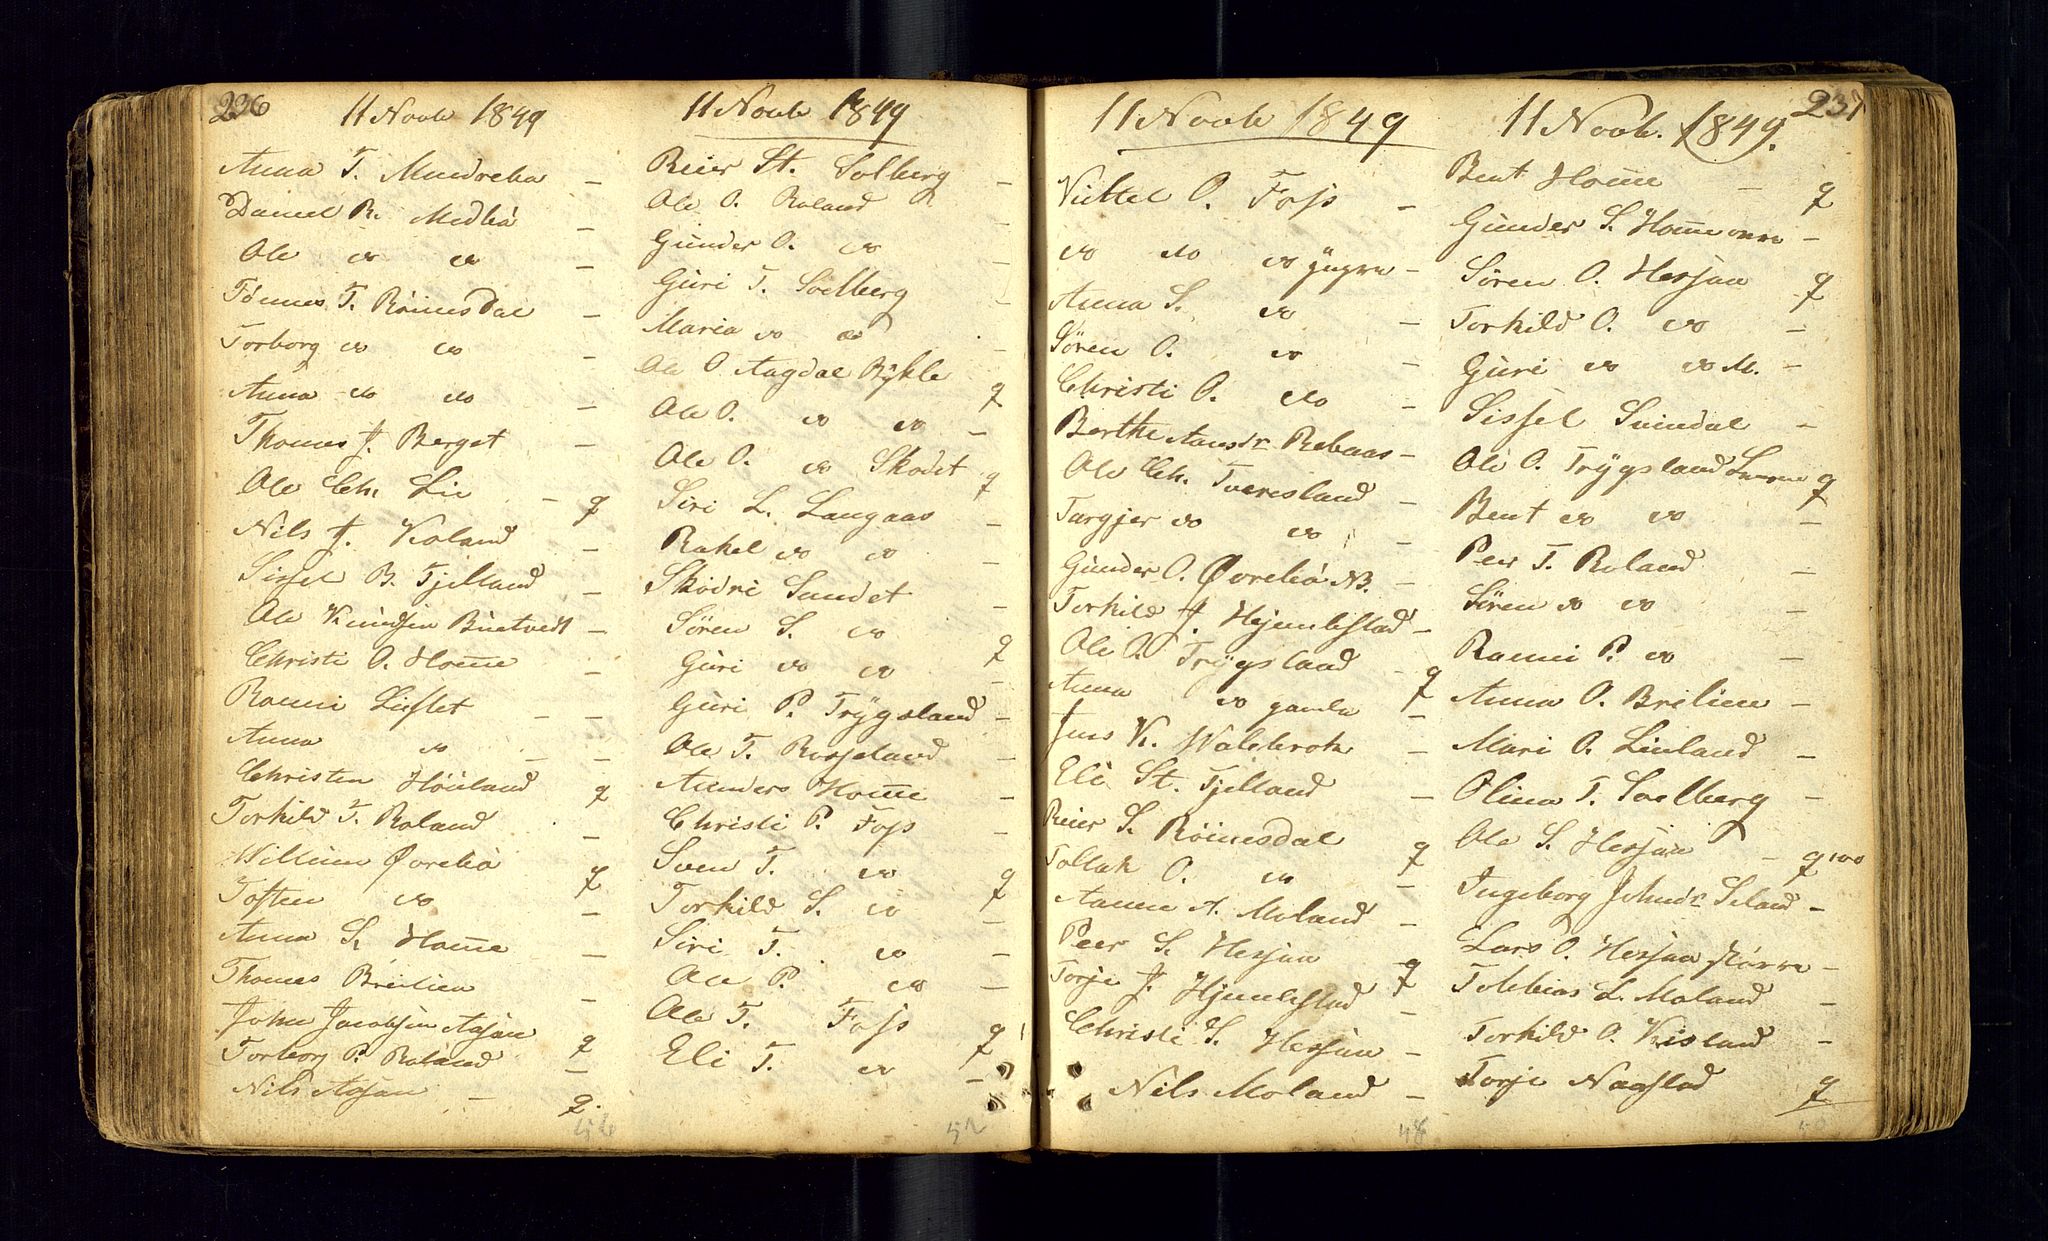 236
11 Novb 1849
Anna T. Mundreba –
Daniel R. Medbø –
Ole do do –
Tønnes T. Røinesdal –
Torborg do do –
Anna do do –
Thomes J. Berget –
Ole Ch. Lie – q
Nils J. Roland –
Sissel B. Fjelland –
Ole Knudsen –
Christi O. Home –
Ranni Lislet – –
Anna do – –
Christen Høiland q
Torkild T. Roland –
William Øvrebø q
Tosten do –
Anna S. Home –
Thomes Breilien –
John Jacobsen Aasen q
Torborg P. Roland –
Nils Aasen – q.
56
11 Novb 1849
Reier St. Solberg –
Ole O. Roland –
Gunder O. do –
Guri T. Soelberg –
Maria do do –
Ole O. Augdal Bykle q
Ole O. do do –
Ole O. do Skodet q
Siri L. Langaas –
Rakel do do –
Skodri Sundet –
Søren S. do q
Guri do do –
Guri P. Trygsland –
Ole T. Rosseland –
Aunders Home –
Christi P. Foss –
Sven T. do q
Torkild S. do –
Siri T. do –
Ole P. do –
Ole T. Foss q
Eli T. do –
52
11 Novb 1849
Kittel O. Foss –
do do do yngre –
Anna S. do –
Søren O. do –
Christi O. do –
Berthe Aanesdr Rebaas –
Ole Ch. Tveresland –
Targjer do do –
Gunder O. Øvrebø NB. –
Torkild J. Hjemlestad –
Ole O. Trygsland – q
Anna do gamle –
Jens K. Walebrok –
Eli St. Fjelland –
Reier S. Røinesdal q
Tollak O. do –
Aanen A. Moland –
Peer S. Hesjan q
Torje J. Hjemlestad –
Christi S. Hesjan –
Nils Moland –
48
237
11 Novb. 1849.
Bent Home – q
Gunder S. Home –
Søren O. Hesjan q
Torkild O. do –
Guri do do M. –
Sissel Svindal –
Ole O. Trygsland q
Bent do do –
Peer T. Roland –
Søren do do –
Ranni P. do –
Anna O. Brelien –
Mari O. Linland –
Olina T. Soelberg –
Ole S. Hesjan – q
Ingeborg Johnsdr Seland –
Lars O. Hesjan større –
Tobbias L. Moland –
Torkild O. Kisland –
Torje Nagstad q